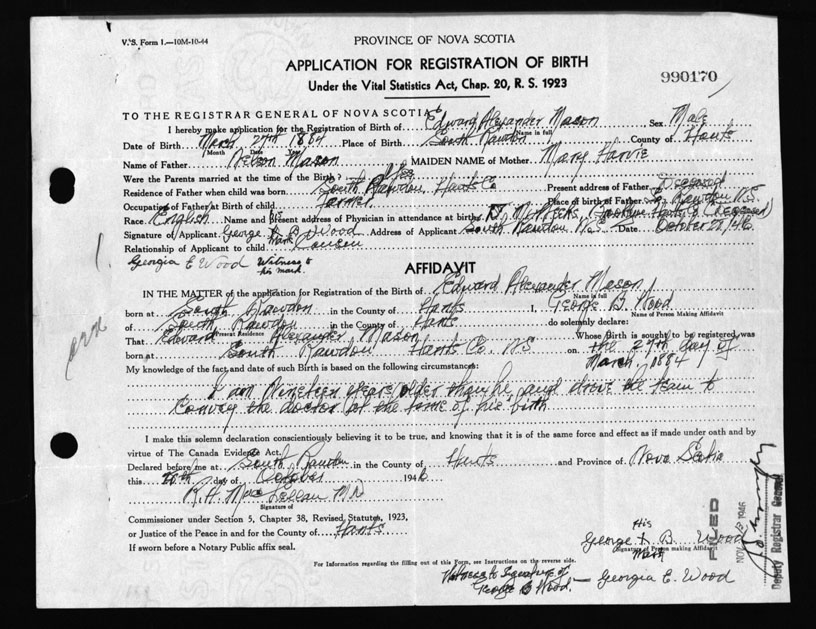 V.S. Form 1.—10M-10-44
PROVINCE OF NOVA SCOTIA
APPLICATION FOR REGISTRATION OF BIRTH
Under the Vital Statistics Act, Chap. 20, R. S. 1923
990170
TO THE REGISTRAR GENERAL OF NOVA SCOTIA
I hereby make application for the Registration of Birth of Edward Alexander Mason Sex Male
Name in full
Date of Birth March 27th 1884 Place of Birth South Rawdon County of Hants
Month Date Year
Name of Father Nelson Mason MAIDEN NAME of Mother Mary Harvie
Were the Parents married at the time of the Birth? Yes
Residence of Father when child was born South Rawdon Hants Co Present address of Father Deceased
Occupation of Father at Birth of child farmer Place of birth of Father So. Rawdon N.S.
Race English Name and present address of Physician in attendance at birth Dr (Deceased)
Signature of Applicant George B Wood Address of Applicant South Rawdon N.S. Date October 28/46
his mark
Relationship of Applicant to child Cousin
Georgia E Wood Witness to his mark
AFFIDAVIT
IN THE MATTER of the application for Registration of the Birth of Edward Alexander Mason
Name in full
born at South Rawdon in the County of Hants I, George B. Wood
Name of Person Making Affidavit
of South Rawdon in the County of Hants do solemnly declare:
Present Residence
That Edward Alexander Mason Whose Birth is sought to be registered was
born at South Rawdon Hants Co. NS on the 27th day of March, 1884
My knowledge of the fact and date of such Birth is based on the following circumstances:
I am nineteen years older than he and drove the team to
convey the doctor at the time of his birth
I make this solemn declaration conscientiously believing it to be true, and knowing that it is of the same force and effect as if made under oath and by
virtue of The Canada Evidence Act.
Declared before me at South Rawdon in the County of Hants and Province of Nova Scotia
this 28th day of October 1946
R H MacLellan MD
Signature of
Commissioner under Section 5, Chapter 38, Revised Statutes, 1923,
or Justice of the Peace in and for the County of Hants
If sworn before a Notary Public affix seal.
His
George X B Wood
Signature of Person making Affidavit
Mark
For Information regarding the filling out of this Form, see Instructions on the reverse side.
Witness to Signature of George B Wood. — Georgia E. Wood
FILED
NOV 1946
Deputy Registrar General